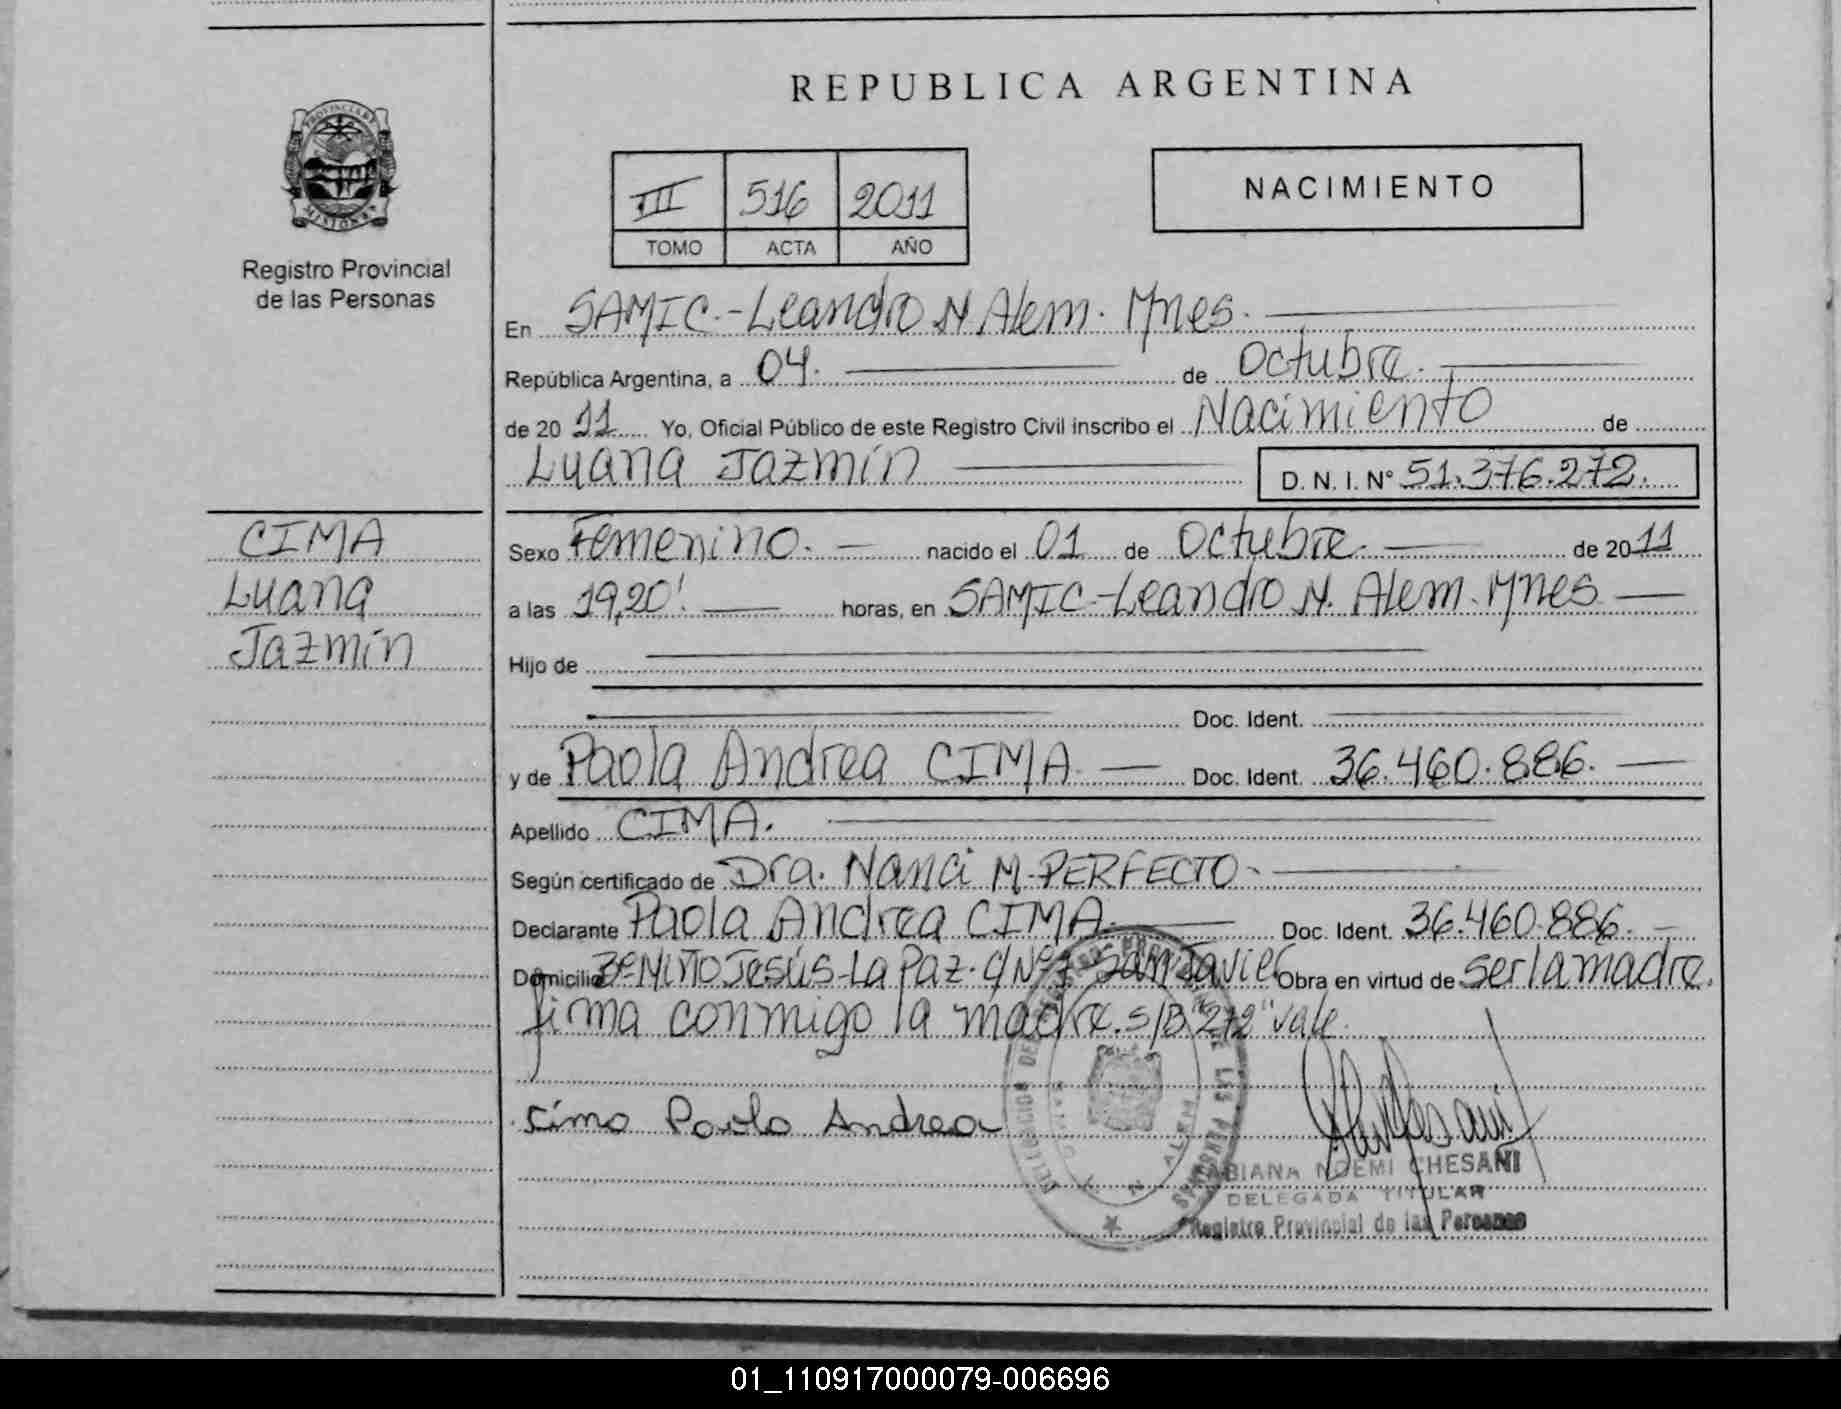 REPUBLICA ARGENTINA
III 516 2011
TOMO ACTA AÑO
NACIMIENTO
PROVINCIA DE
MISIONES
Registro Provincial
de las Personas
En SAMIC.-Leandro N Alem. Mnes.
República Argentina, a 04. de Octubre.
de 20 11 Yo, Oficial Público de este Registro Civil inscribo el Nacimiento de
Luana Jazmín D. N. I. N° 51.376.272.
CIMA
Luana
Jazmín
Sexo Femenino. nacido el 01 de Octubre. de 2011
a las 19,20' horas, en SAMIC-Leandro N. Alem. Mnes
Hijo de
Doc. Ident.
y de Paola Andrea CIMA. Doc. Ident. 36.460.886.
Apellido CIMA.
Según certificado de Dra. Nanci M. PERFECTO.
Declarante Paola Andrea CIMA. Doc. Ident. 36.460.886.
Domicilio Bº Niño Jesús-La Paz. c/Nº7-San Javier Obra en virtud de ser la madre.
firma conmigo la madre. s/B "272" vale.
Cima Paola Andrea
FABIANA NOEMI CHESANI
DELEGADA TITULAR
Registro Provincial de las Personas
01_110917000079-006696